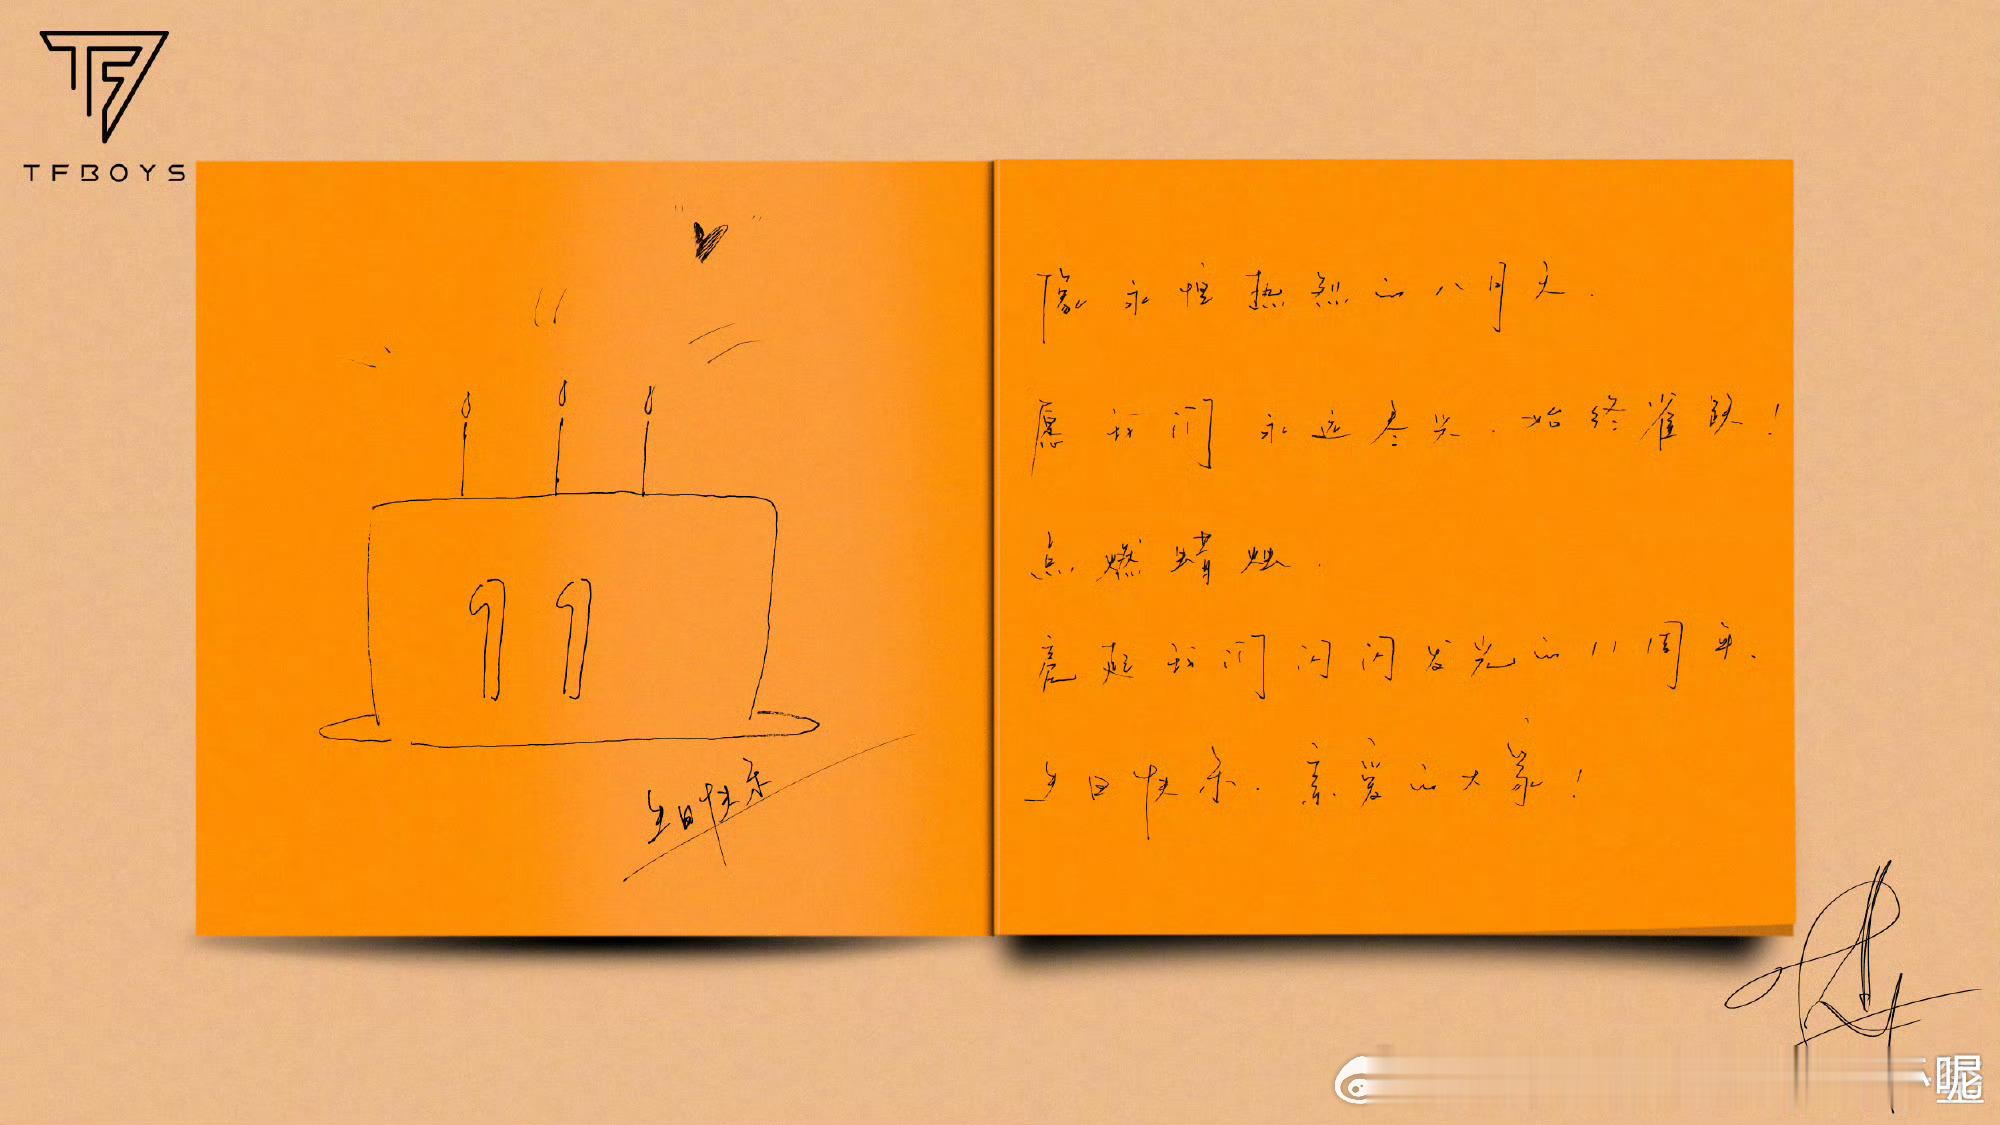 TFBOYS
11
生日快乐
像永恒热烈的八月天.
愿我们永远尽兴、始终雀跃!
点燃蜡烛.
亮起我们闪闪发光的11周年、
生日快乐.亲爱的大家!
呢